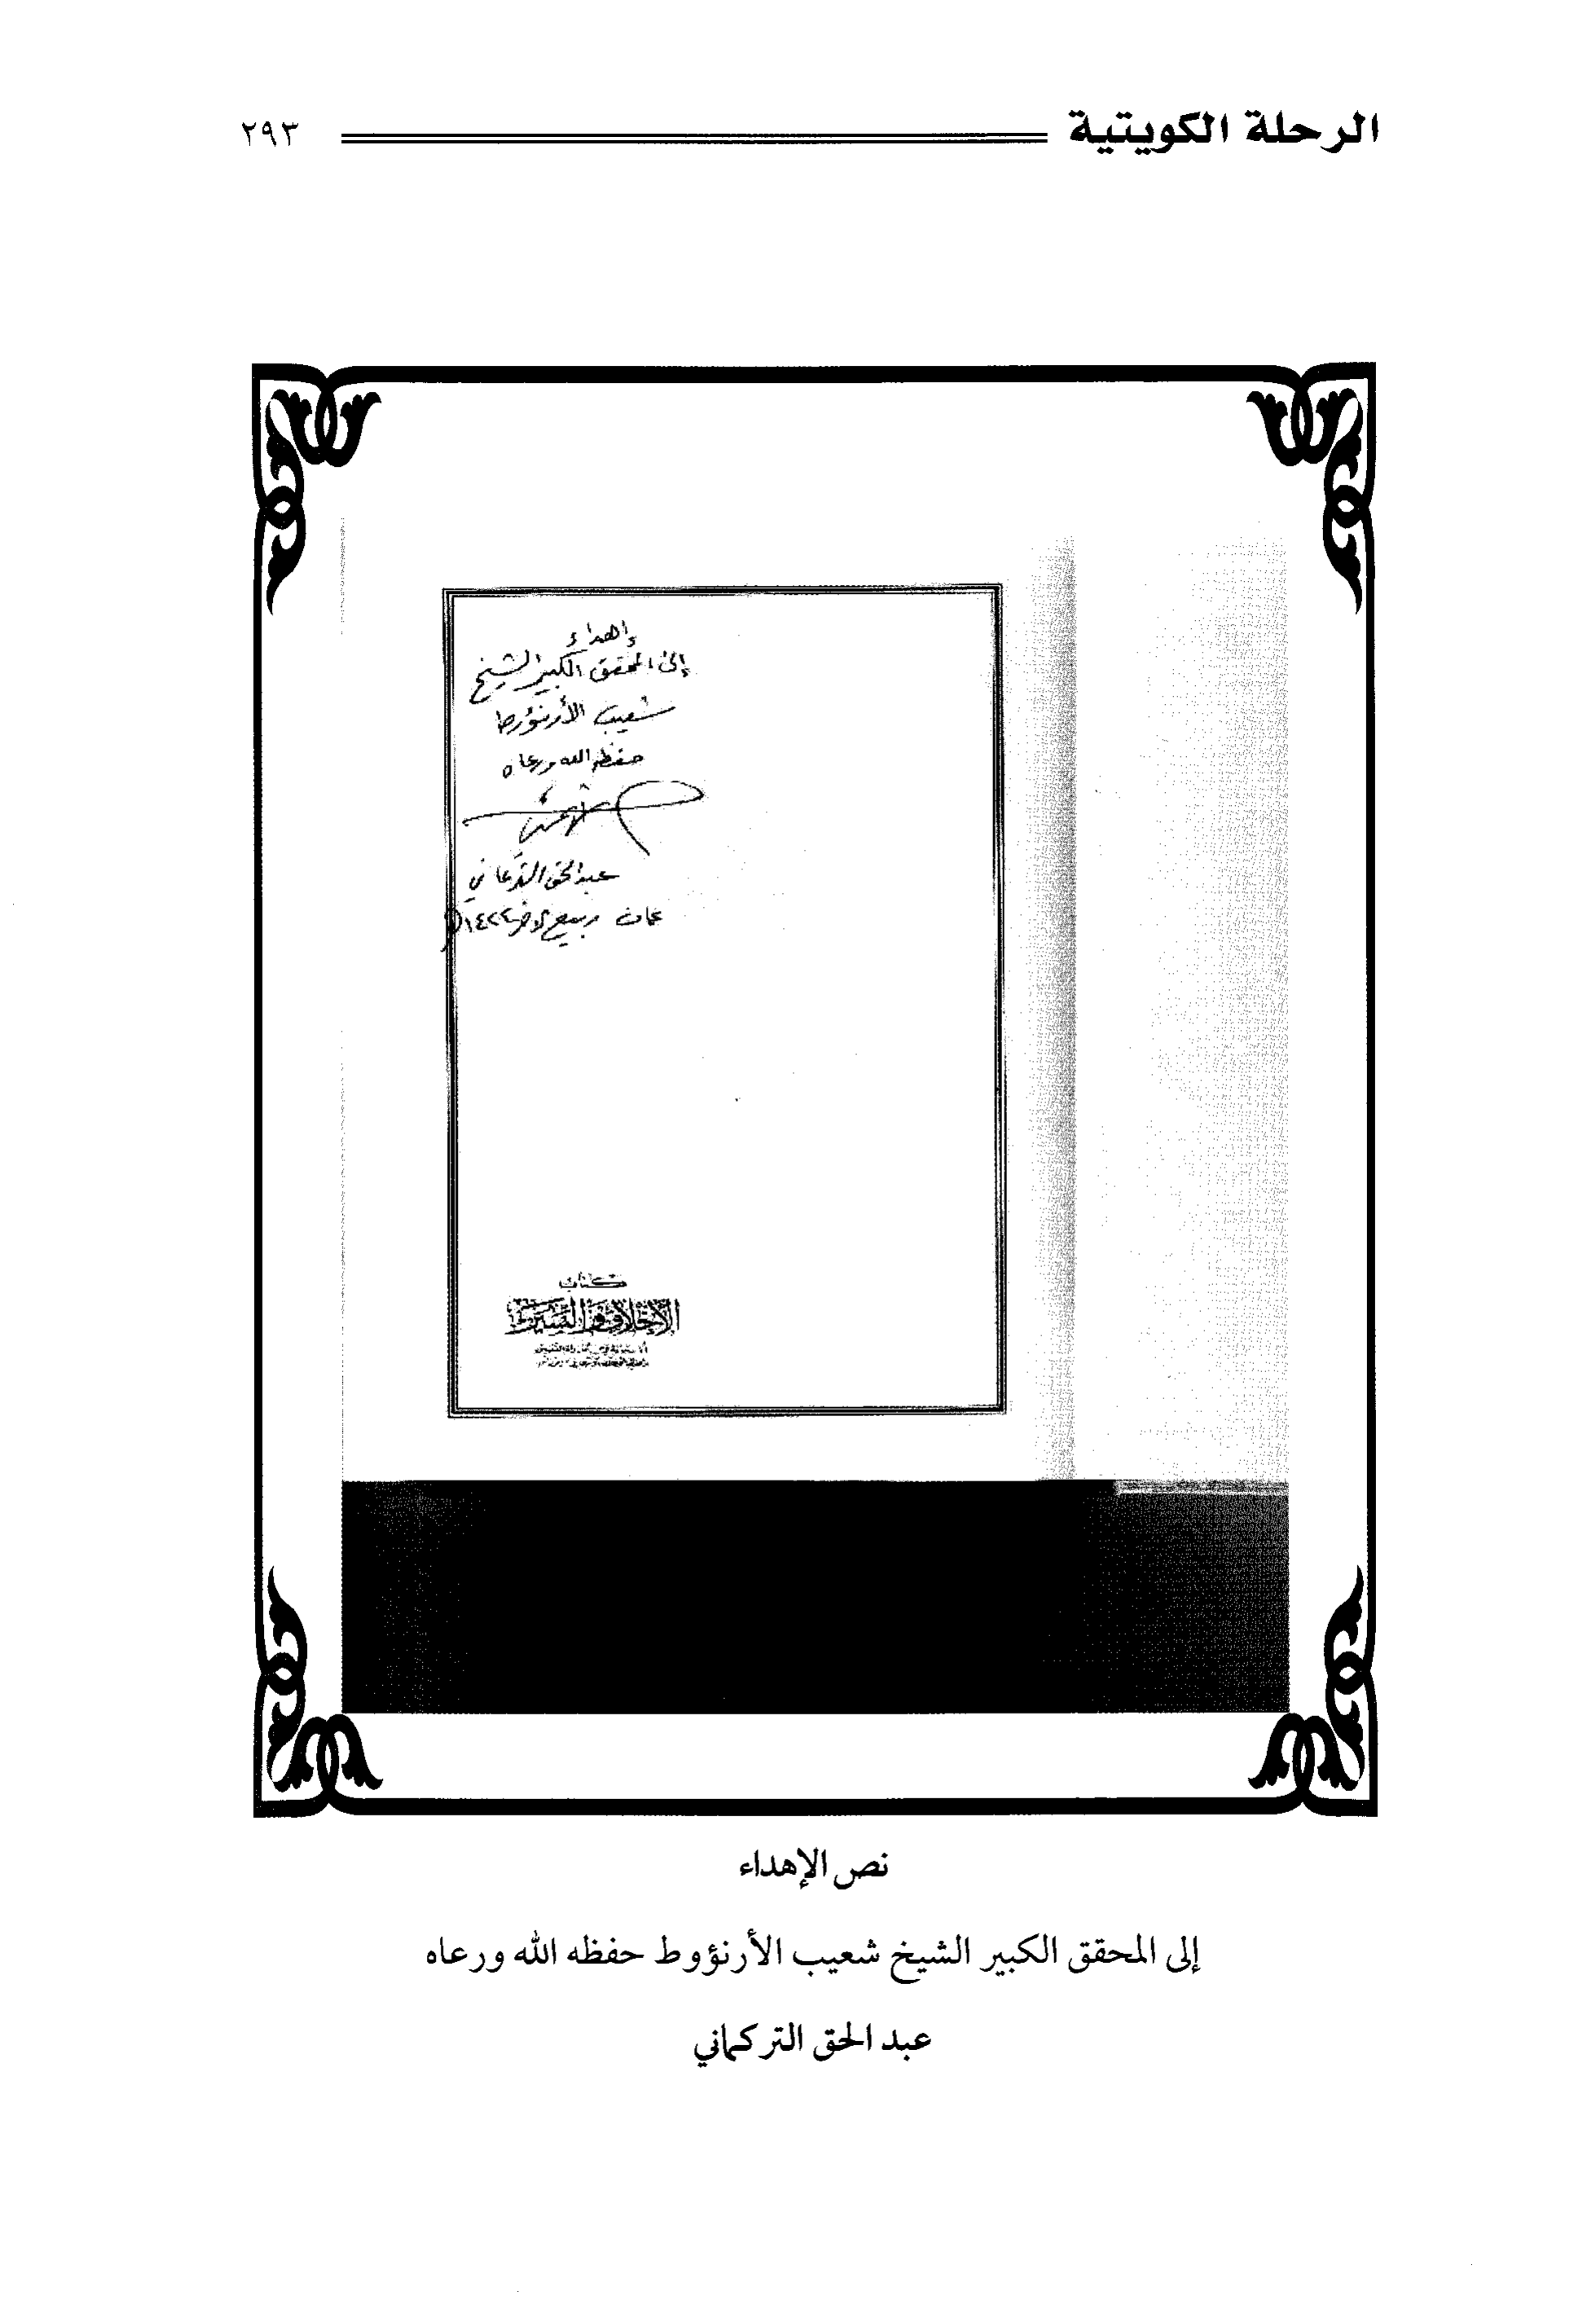 الرحلة الكويتية ٢٩٣
إهداء
إلى المحقق الكبير الشيخ
شعيب الأرنؤوط
حفظه الله ورعاه
عبد الحق التركماني
عمان ربيع الآخر ١٤٢٢
كتاب
الأخلاق والسير
نص الإهداء
إلى المحقق الكبير الشيخ شعيب الأرنؤوط حفظه الله ورعاه
عبد الحق التركماني